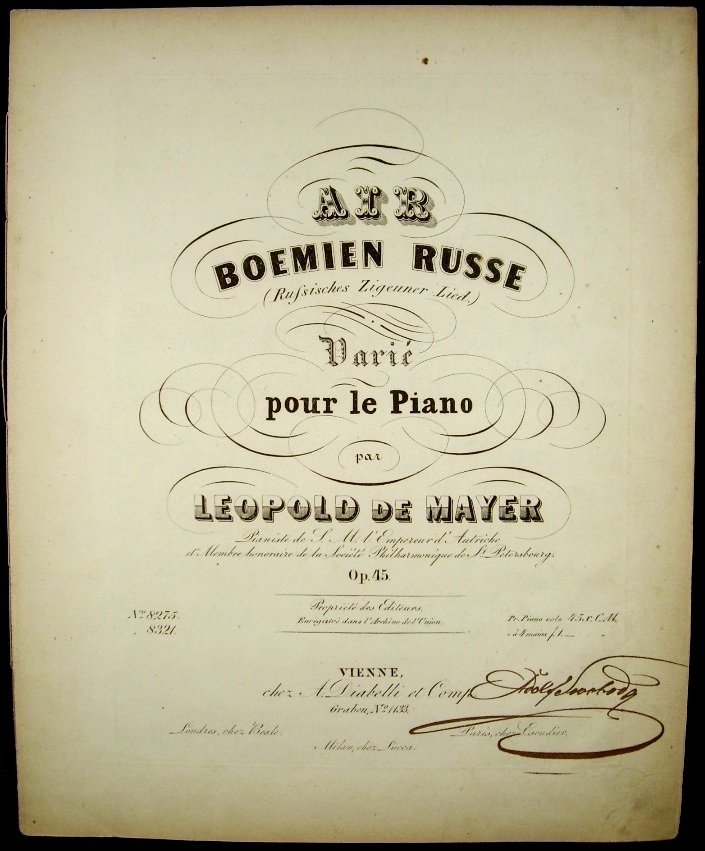 AIR
BOEMIEN RUSSE
(Ruſsisches Zigeuner Lied.)
Varié
pour le Piano
par
LEOPOLD DE MAYER
Pianiste de S. M. l'Empereur d'Autriche
et Membre honoraire de la Société Philharmonique de St. Petersbourg.
Op. 45.
Propriété des Editeurs.
Enregistré dans l'Archive de l'Union.
No. 8275.
8321.
Pr. Piano solo 45 x. C.M.
à 4 mains f. 1.
VIENNE,
chez A. Diabelli et Comp.
Graben, No. 1133.
Adolf Swoboda
Londres, chez Beale.
Paris, chez Escudier.
Milan, chez Lucca.